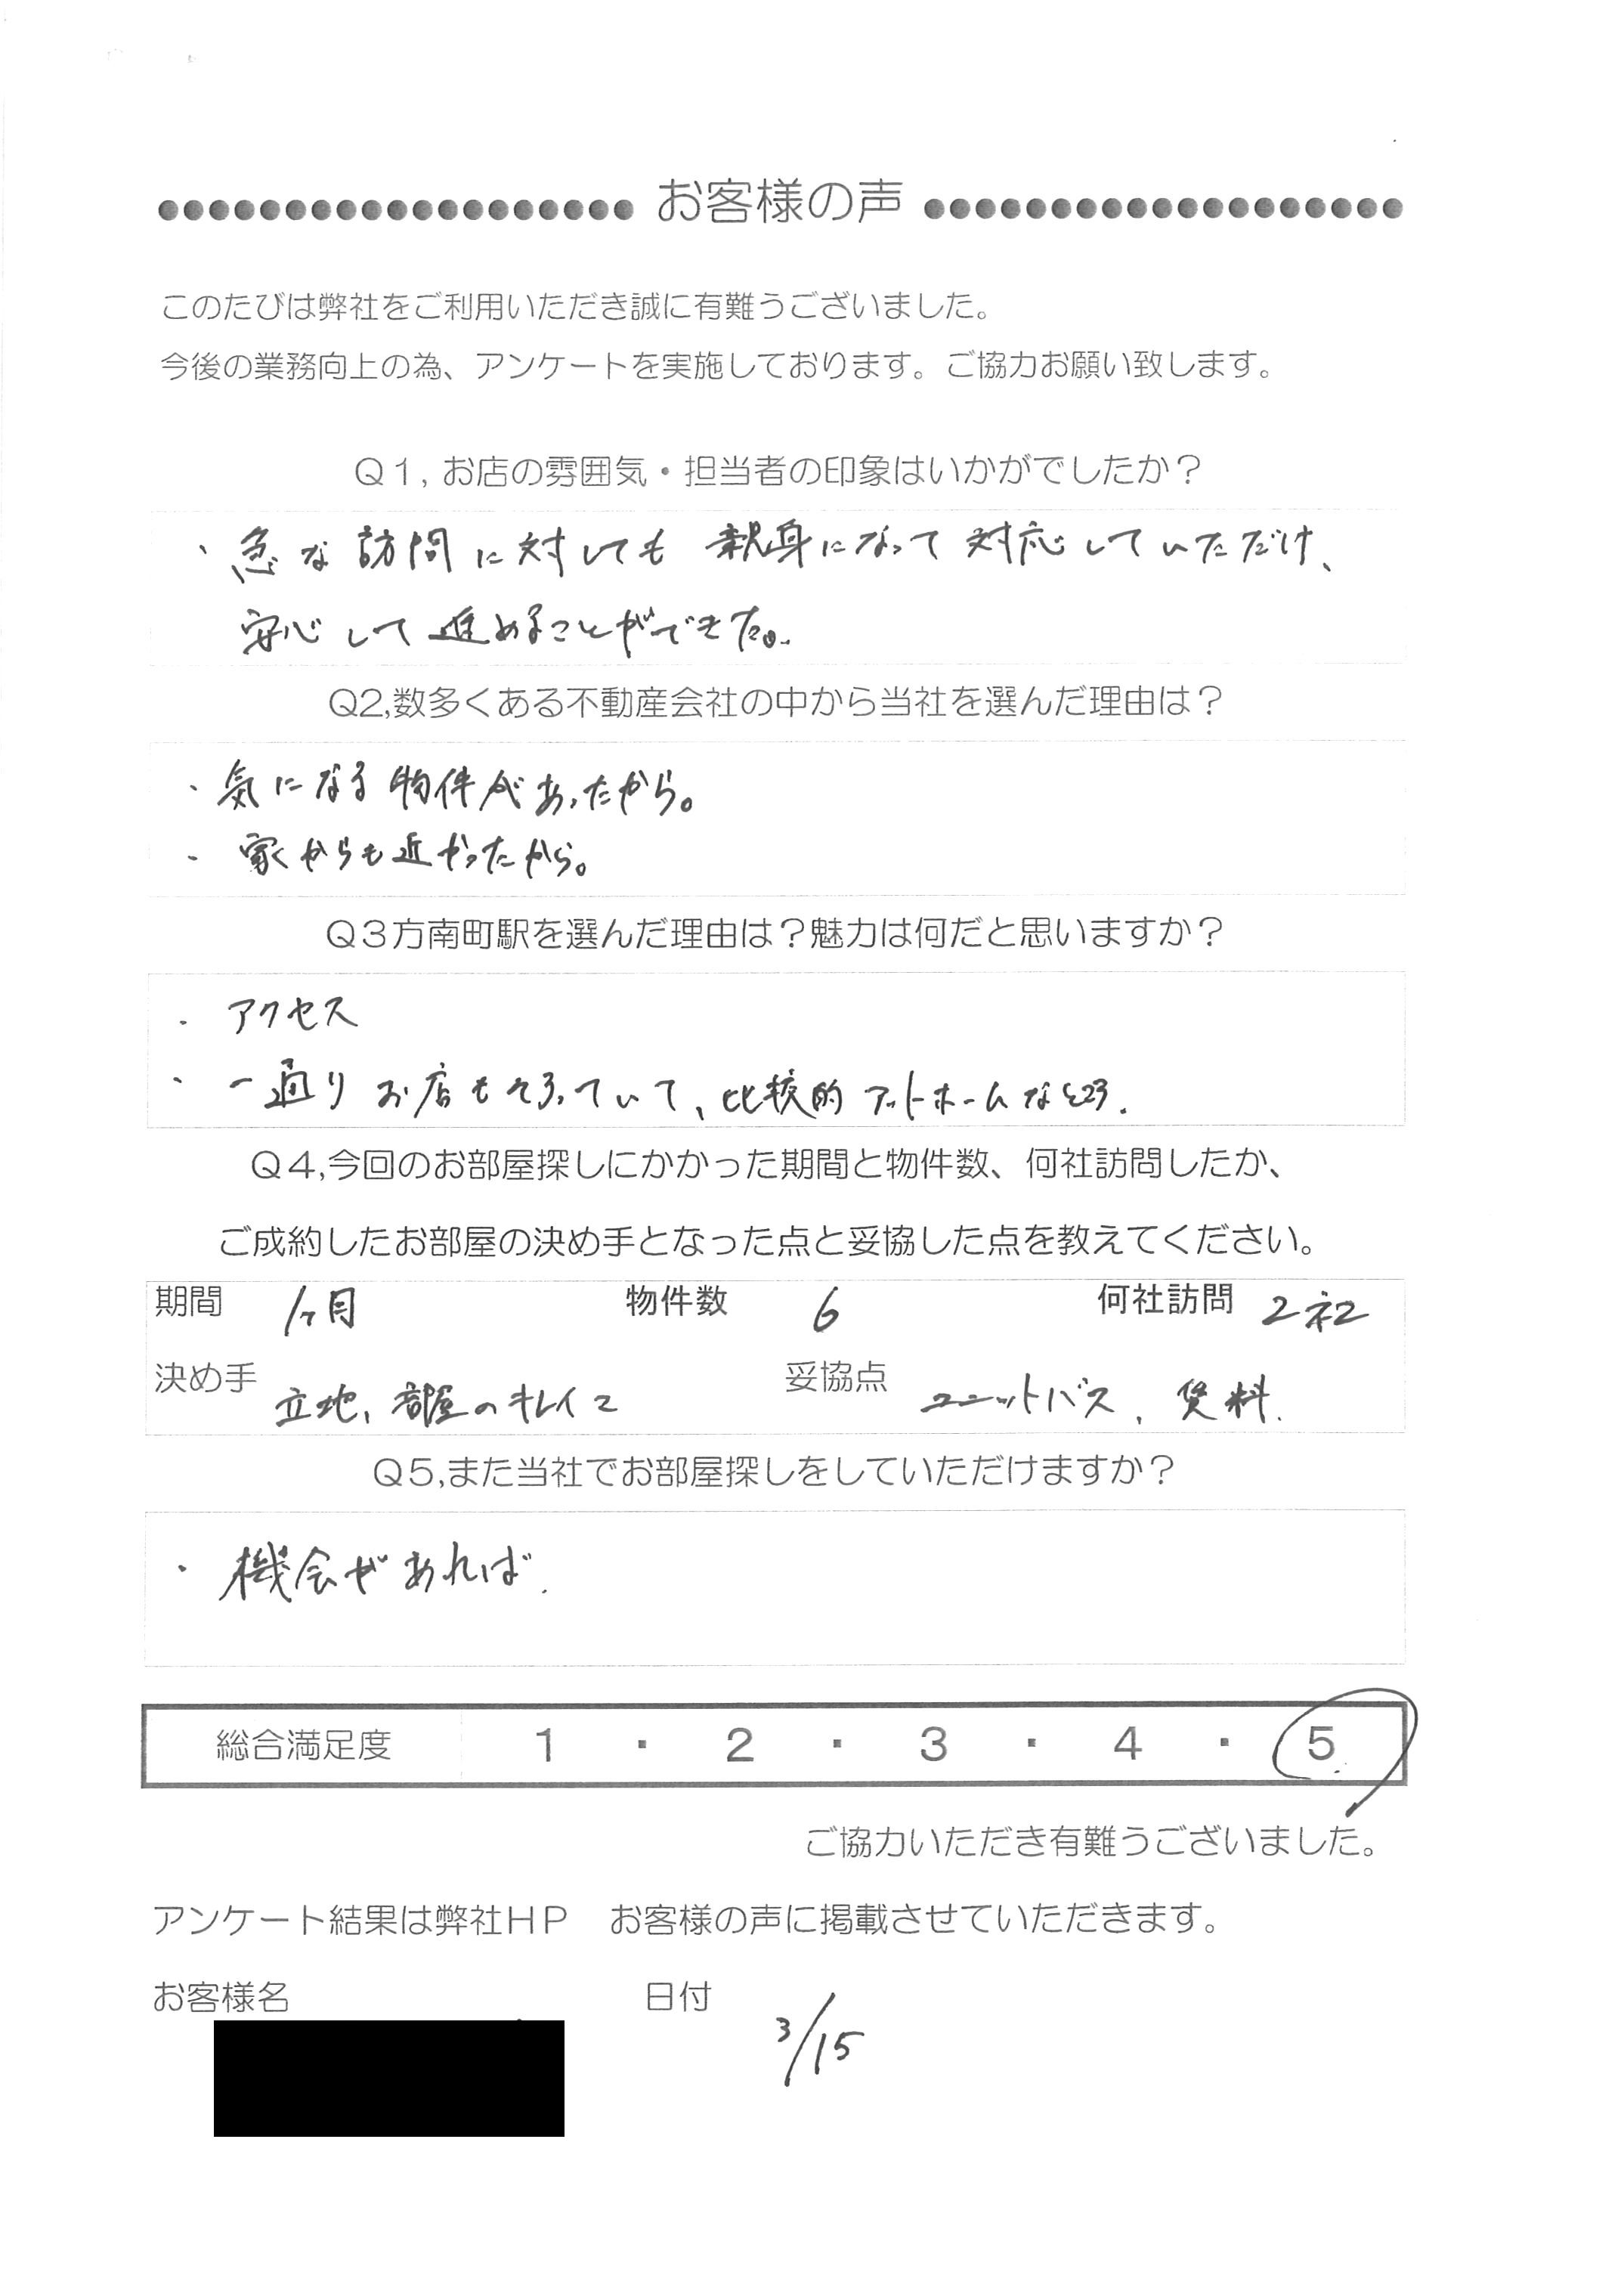 お客様の声
このたびは弊社をご利用いただき誠に有難うございました。
今後の業務向上の為、アンケートを実施しております。ご協力お願い致します。
Q1, お店の雰囲気・担当者の印象はいかがでしたか？
・急な訪問に対しても親身になって対応していただけ、
安心して進めることができた。
Q2,数多くある不動産会社の中から当社を選んだ理由は？
・気になる物件があったから。
・家からも近かったから。
Q3方南町駅を選んだ理由は？魅力は何だと思いますか？
・アクセス
・一通りお店もそろっていて、比較的アットホームなところ.
Q4,今回のお部屋探しにかかった期間と物件数、何社訪問したか、
ご成約したお部屋の決め手となった点と妥協した点を教えてください。
期間 1ヶ月 物件数 6 何社訪問 2社
決め手 立地、部屋のキレイさ 妥協点 ユニットバス、賃料.
Q5,また当社でお部屋探しをしていただけますか？
・機会があれば.
総合満足度 1 ・ 2 ・ 3 ・ 4 ・ 5
ご協力いただき有難うございました。
アンケート結果は弊社HP お客様の声に掲載させていただきます。
お客様名 日付 3/15